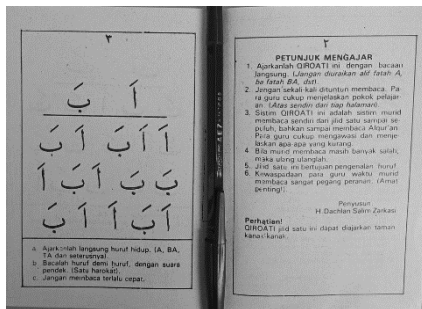 ٣
اَ بَ
اَ اَ بَ اَ بَ
بَ بَ اَ بَ اَ
اَ بَ اَ اَ بَ
a Ajarkanlah langsung huruf hidup. (A, BA,
TA dan seterusnya).
b Bacalah huruf demi huruf, dengan suara
pendek. (Satu harokat).
c. Jangan membaca terlalu cepat.
٢
PETUNJUK MENGAJAR
1. Ajarkanlah QIROATI ini dengan bacaan
langsung. (Jangan diuraikan alif fatah A,
ba fatah BA, dst).
2. Jangan sekali kali dituntun membaca. Pa-
ra guru cukup menjelaskan pokok pelajar-
an. (Atas sendiri dari tiap halaman).
3. Sistim QIROATI ini adalah sistim murid
membaca sendiri dari jilid satu sampai se-
puluh, bahkan sampai membaca Alqur'an.
Para guru cukup mengawasi dan menje-
laskan apa-apa yang kurang.
4. Bila murid membaca masih banyak salah,
maka ulang ulanglah.
5. Jilid satu ini bertujuan pengenalan huruf.
6. Kewaspadaan para guru waktu murid
membaca sangat pegang peranan. (Amat
penting!).
Penyusun
H. Dachlan Salim Zarkasi
Perhatian!
QIROATI jilid satu ini dapat diajarkan taman
kanak kanak.